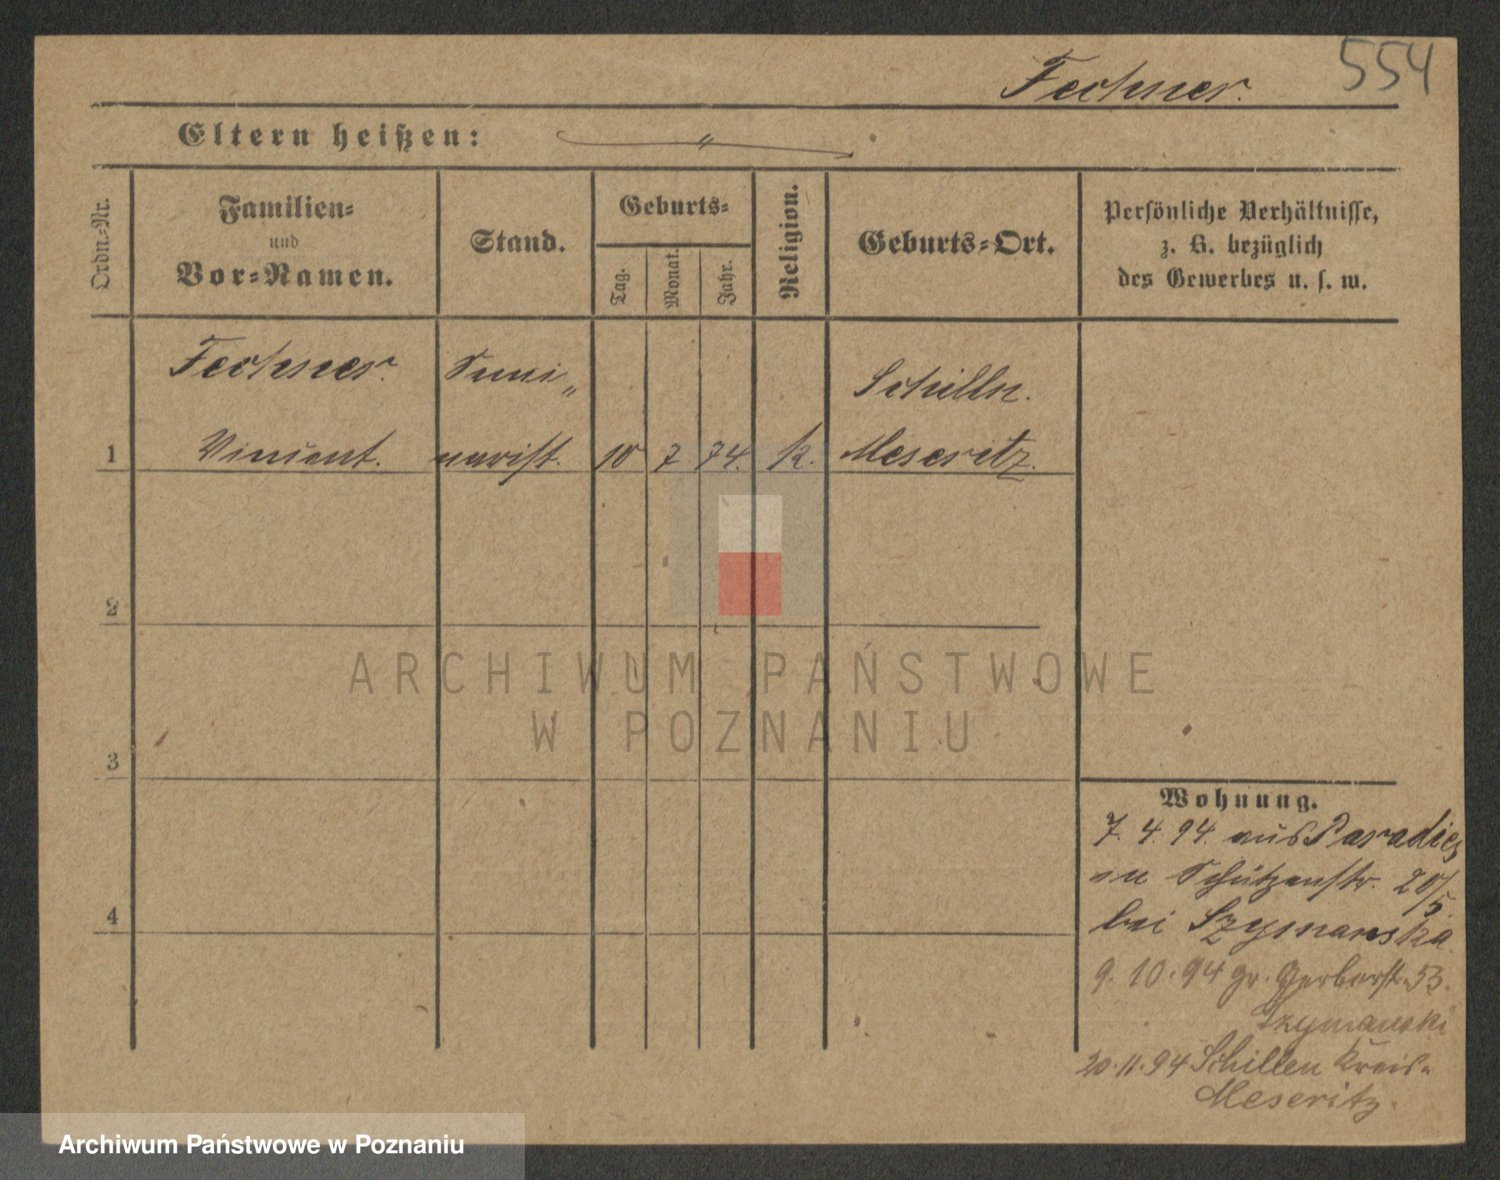 Fechner. 554
Eltern heißen: "
Ordn.-Nr. Familien- und Vor-Namen. Stand. Geburts- Tag. Monat. Jahr. Religion. Geburts-Ort. Persönliche Verhältnisse, z. B. bezüglich des Gewerbes u. s. w.
Fechner. Semi„ Schilln.
1 Vincent. narist. 10 7 74. k. Meseritz.
2
3
4
Wohnung.
7. 4. 94. aus Paradies
in Schützenstr. 20/5.
bei Szymanska
9. 10. 94 gr. Gerberstr. 53.
Szymanski
20. 11. 94 Schillen Kreis-
Meseritz.
ARCHIWUM PAŃSTWOWE
W POZNANIU
Archiwum Państwowe w Poznaniu